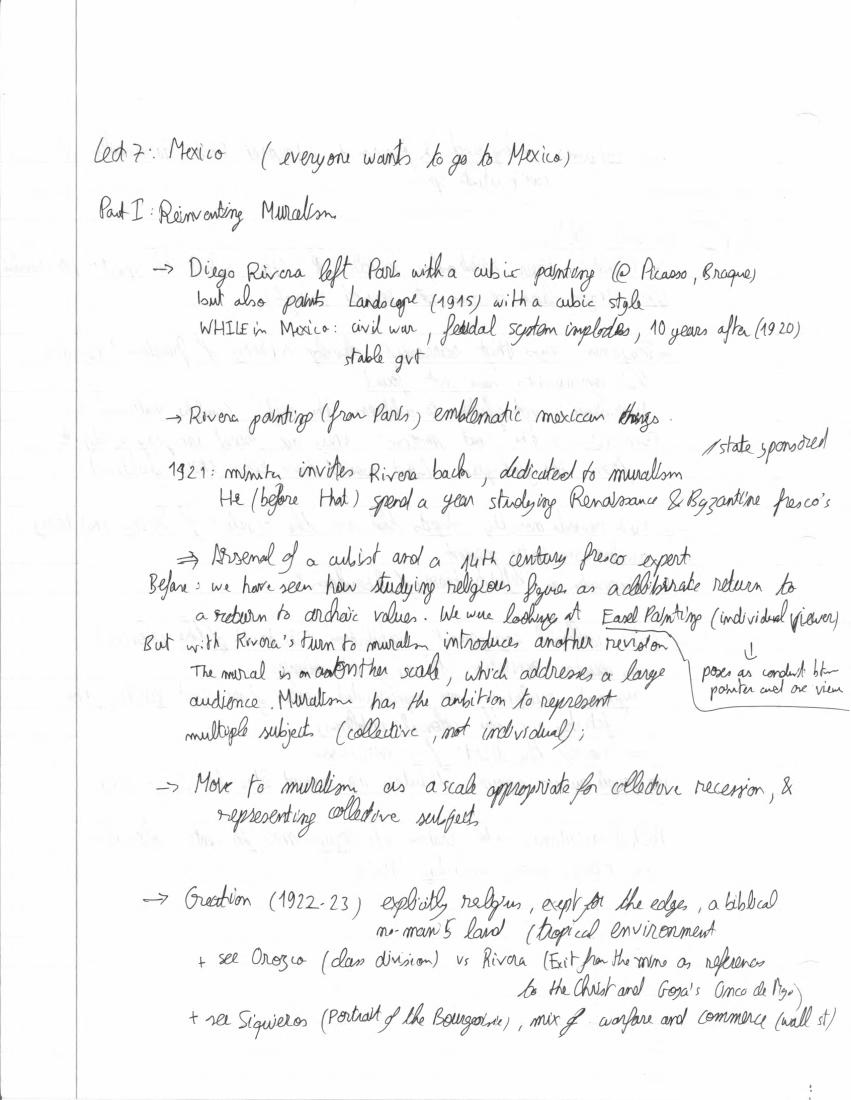 Lect 7: Mexico (everyone wants to go to Mexico)
Part I: Reinventing Muralism
→ Diego Rivera left Paris with a cubic painting (@ Picasso, Braque)
but also paints Landscape (1915) with a cubic style
WHILE in Mexico: civil war, feudal system implodes, 10 years after (1920)
stable gvt
→ Rivera painting (from Paris) emblematic mexican things.
/state sponsored
1921: minister invites Rivera back, dedicated to muralism
He (before that) spend a year studying Renaissance & Byzantine fresco's
⇒ Arsenal of a cubist and a 14th century fresco expert
Before: we have seen how studying religious figure as a deliberate return to
a return to archaic values. We were looking at Easel Painting (individual viewer)
But with Rivera's turn to muralism introduces another revision
The mural is on another scale, which addresses a large
audience. Muralism has the ambition to represent
multiple subjects (collective, not individual);
↓
poses as conduit btw
painter and one view
→ Move to muralism as a scale appropriate for collective recession, &
representing collective subjects
→ Creation (1922-23) explicitly religius, exept for the edges, a biblical
no-man's land (tropical environment
+ see Orozco (class division) vs Rivera (Exit from the mine as reference
to the Christ and Goya's Cinco de )
+ see Siquieros (Portrait of the Bourgeoisie), mix of warfare and commerce (wall st)